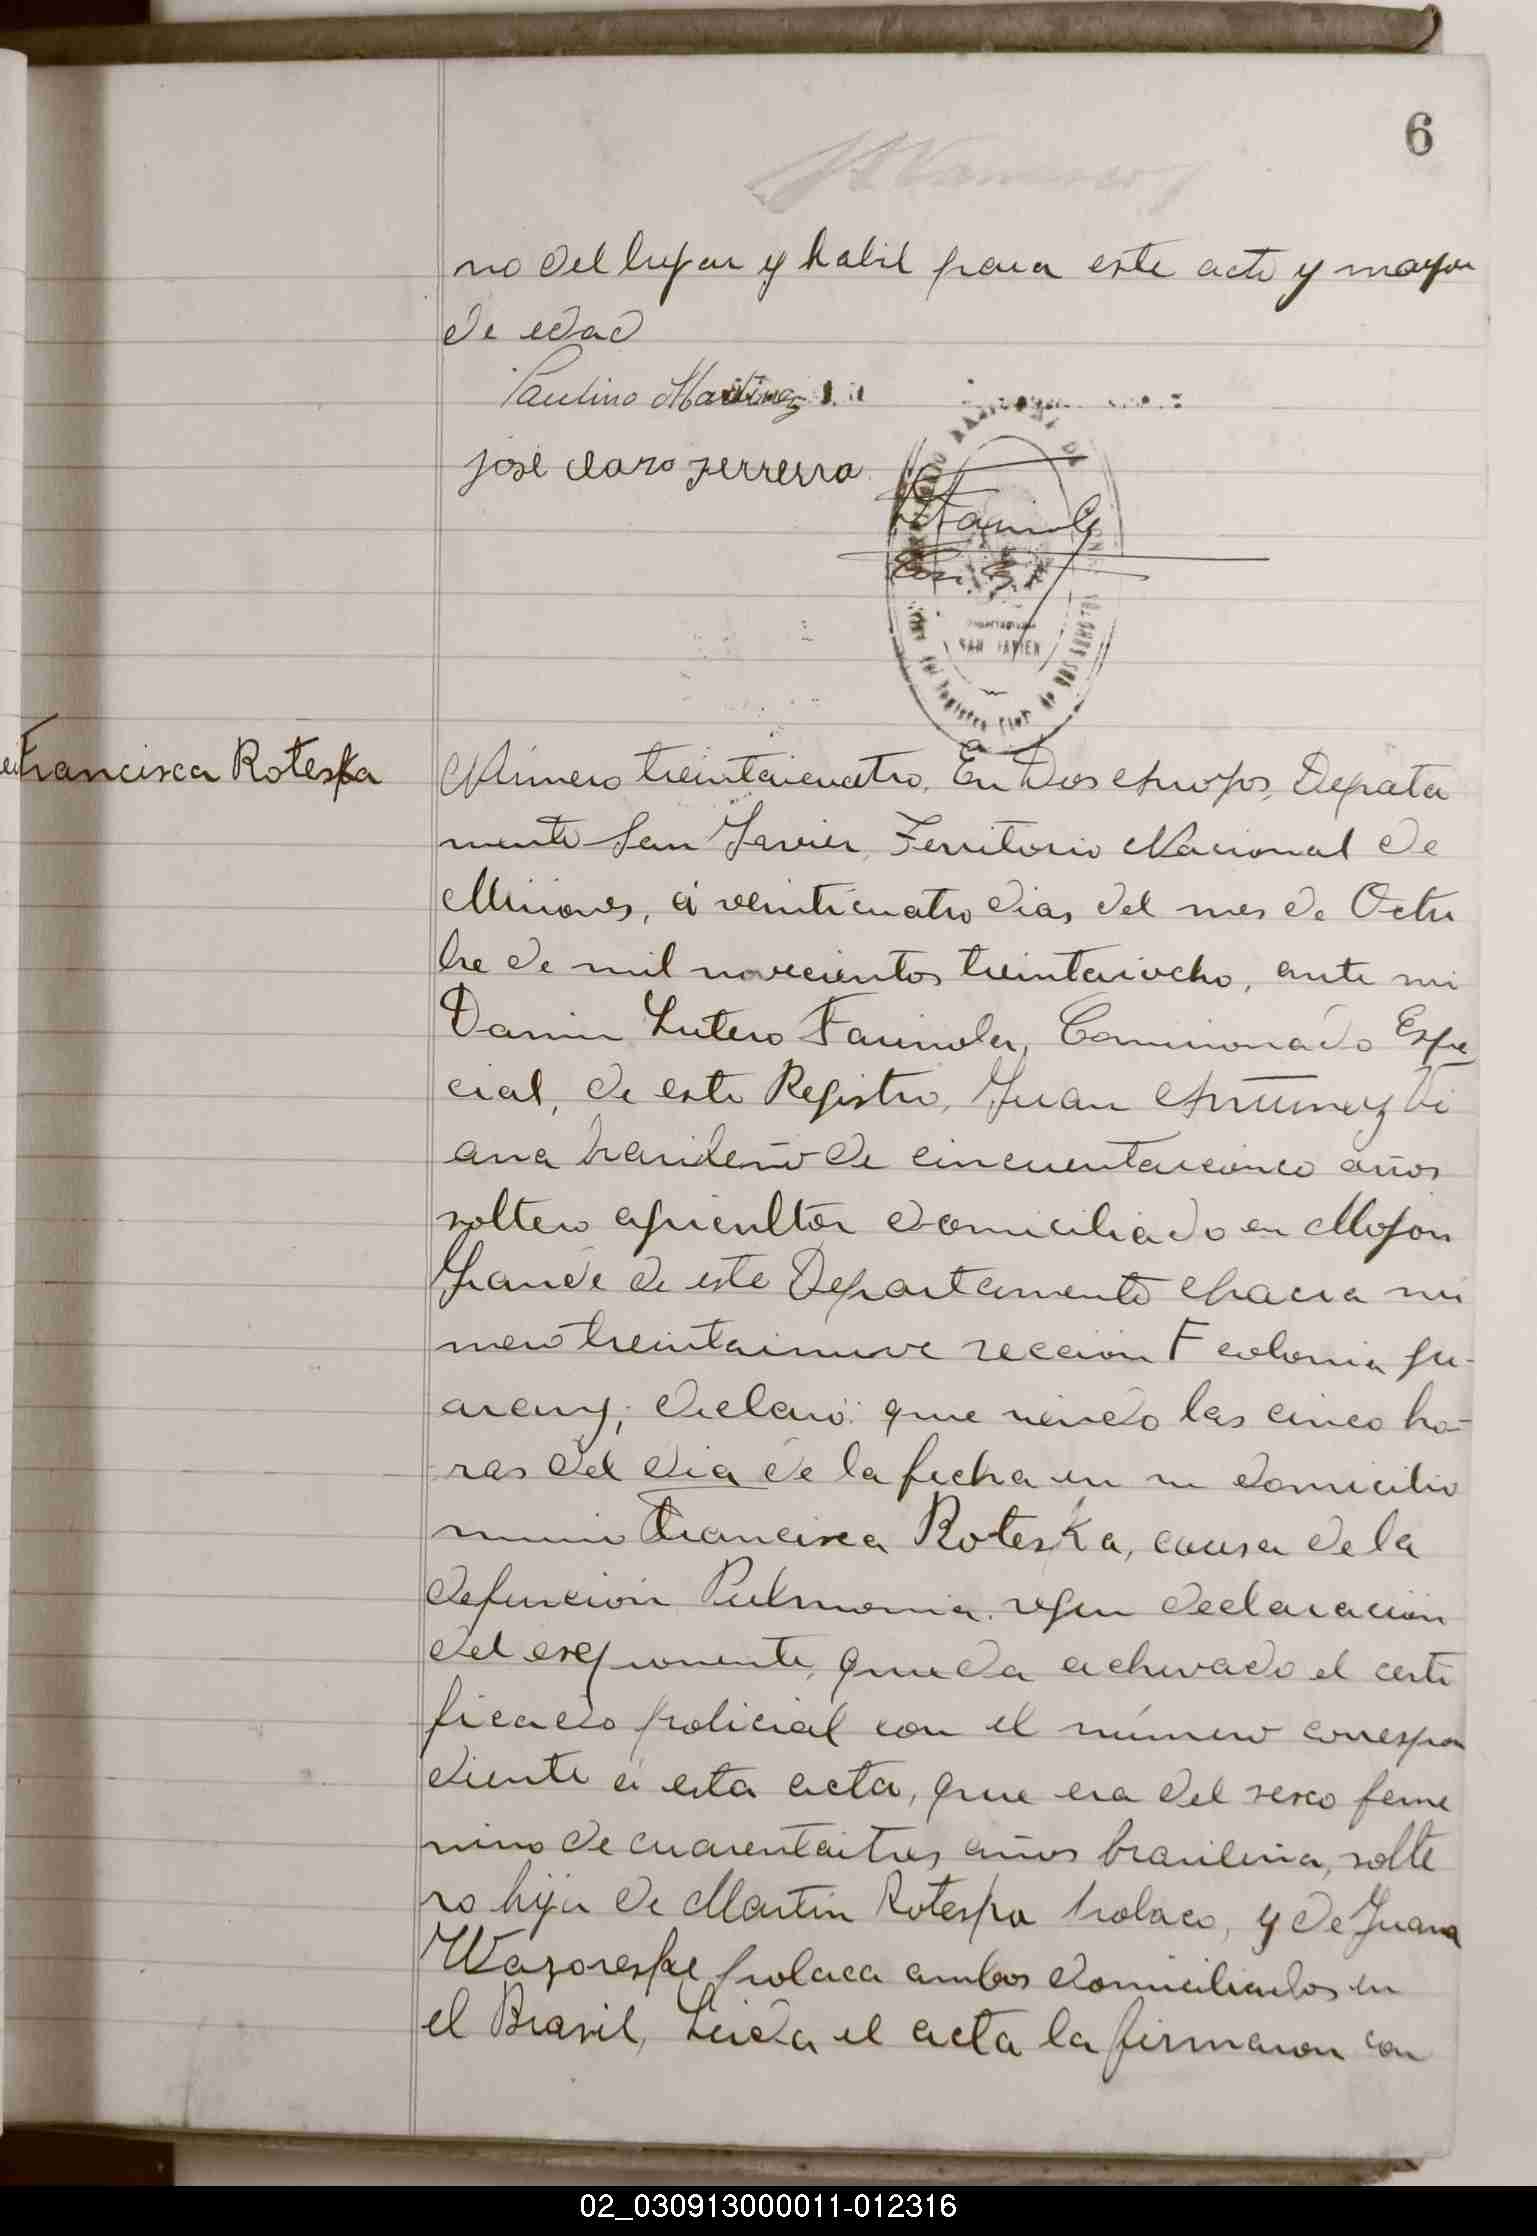 6
no del lugar y habil para este acto y mayor
de edad
Paulino Martinez
José claro Ferrerra
SAN JAVIER
Francisca Roteska
Número treintaicuatro. En Dos Arroyos, Depata
mento San Javier, Territorio Nacional de
Misiones, á veinticuatro dias del mes de Octu
bre de mil novecientos treintaiocho, ante mi
Lutero Farinola, Comisionado Espe
cial, de este Registro, Juan Antunez Vi
ana brasileño de cincuentaicinco años
soltero agricultor domiciliado en Mojon
Grande de este Departamento chacra nú
mero treintainueve seccion F colonia gu-
arany; declaró: que siendo las cinco ho-
ras del dia de la fecha en su domicilio
murio Francisca Roteska, causa de la
defunción Pulmonia segun declaración
del exponente, queda achivado el certi
ficado policial con el número correspon
diente á esta acta, que era del sexo feme
nino de cuarentaitres años brasileña, solte
ra hija de Martin Roteska polaco, y de Juana
Wazoreske polaca ambos domiciliados en
el Brasil, Leida el acta la firmaron con
02_030913000011-012316